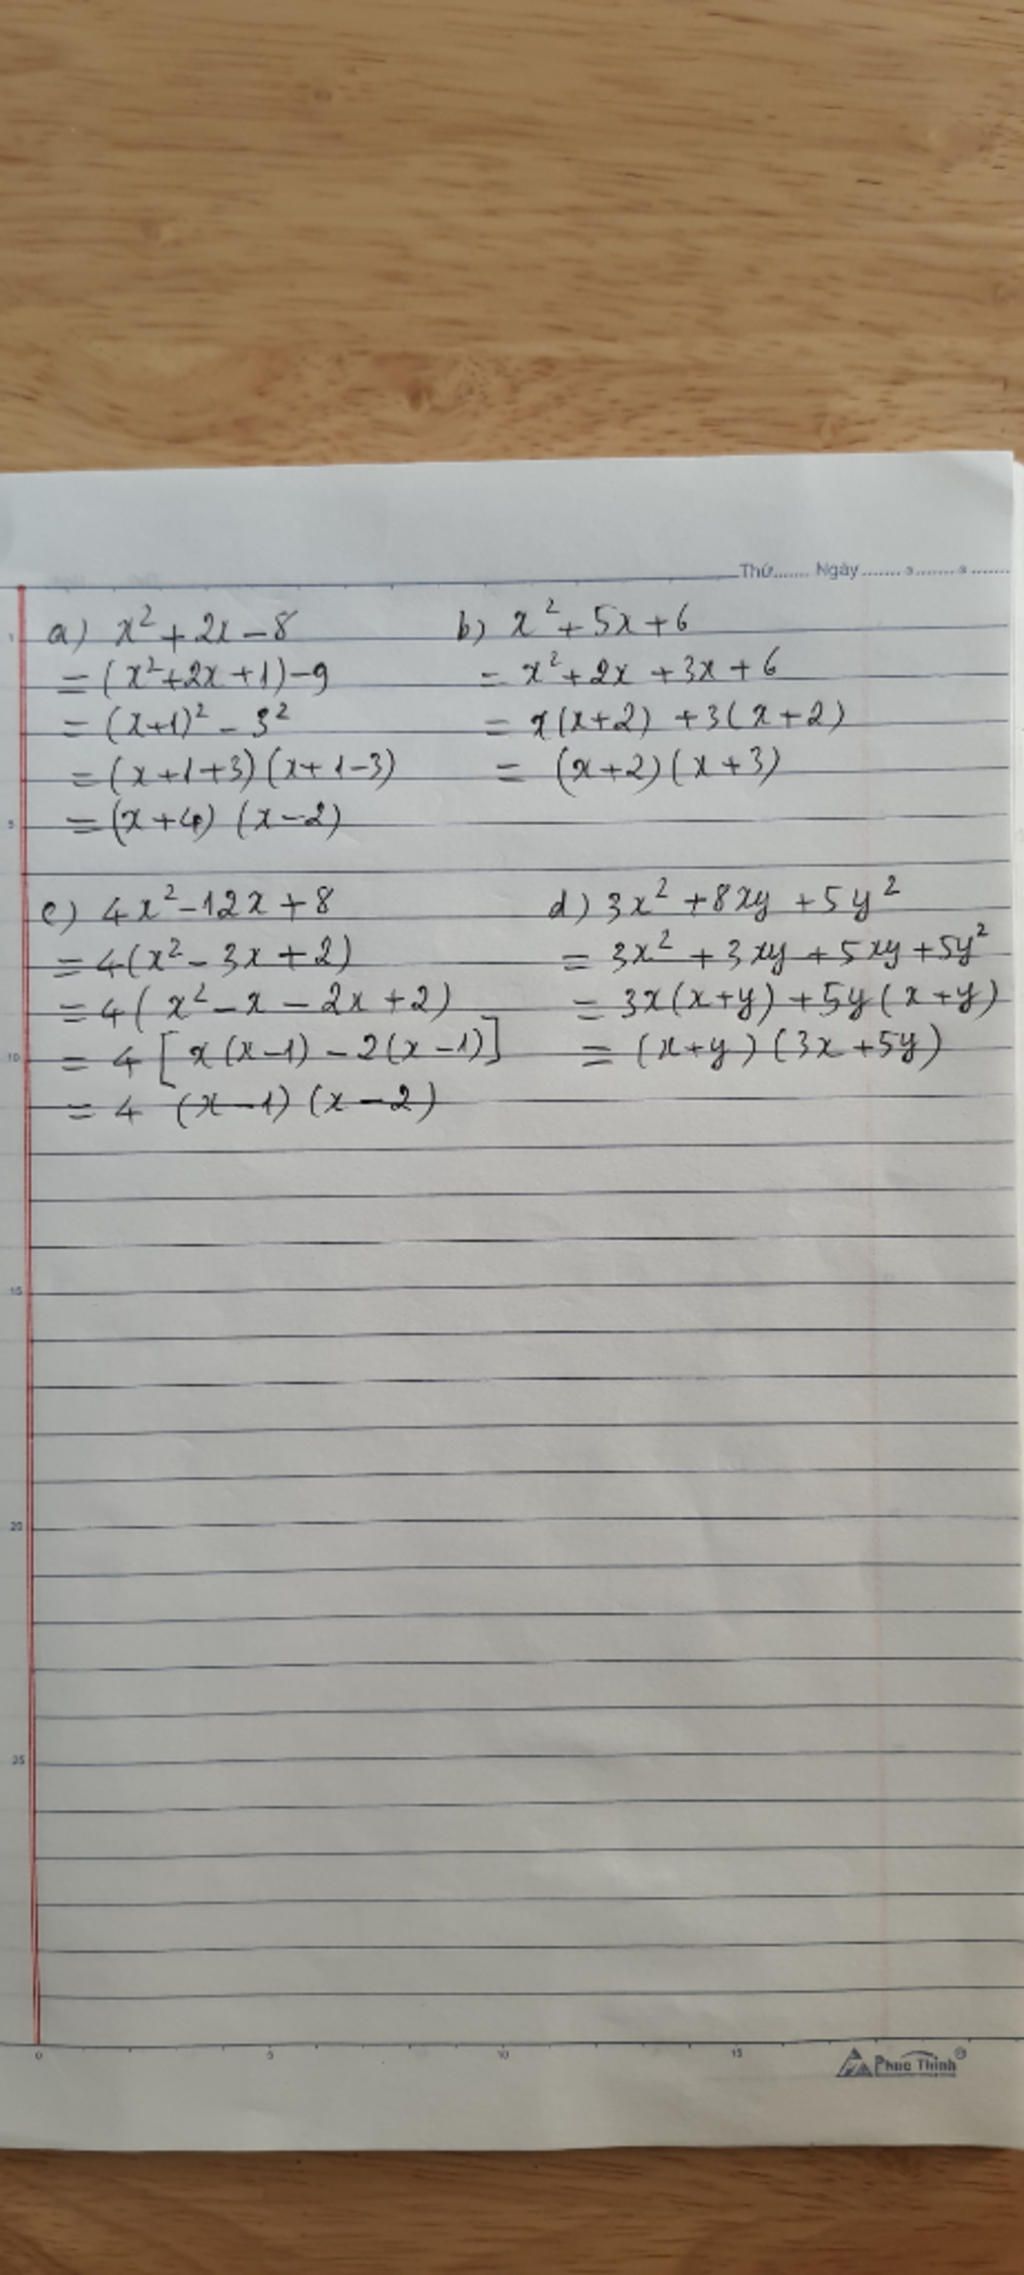 Thứ....... Ngày ........ a ........ a .......
a) x² + 2x - 8
= (x² + 2x + 1) - 9
= (x+1)² - 3²
= (x + 1 + 3) (x + 1 - 3)
= (x + 4) (x - 2)
b) x² + 5x + 6
= x² + 2x + 3x + 6
= x(x+2) + 3(x+2)
= (x+2)(x+3)
c) 4x² - 12x + 8
= 4(x² - 3x + 2)
= 4(x² - x - 2x + 2)
= 4 [x(x-1) - 2(x-1)]
= 4 (x-1) (x-2)
d) 3x² + 8xy + 5y²
= 3x² + 3xy + 5xy + 5y²
= 3x(x+y) + 5y(x+y)
= (x+y) (3x + 5y)
1
5
10
15
20
25
0 5 10 15
Phuc Thinh®